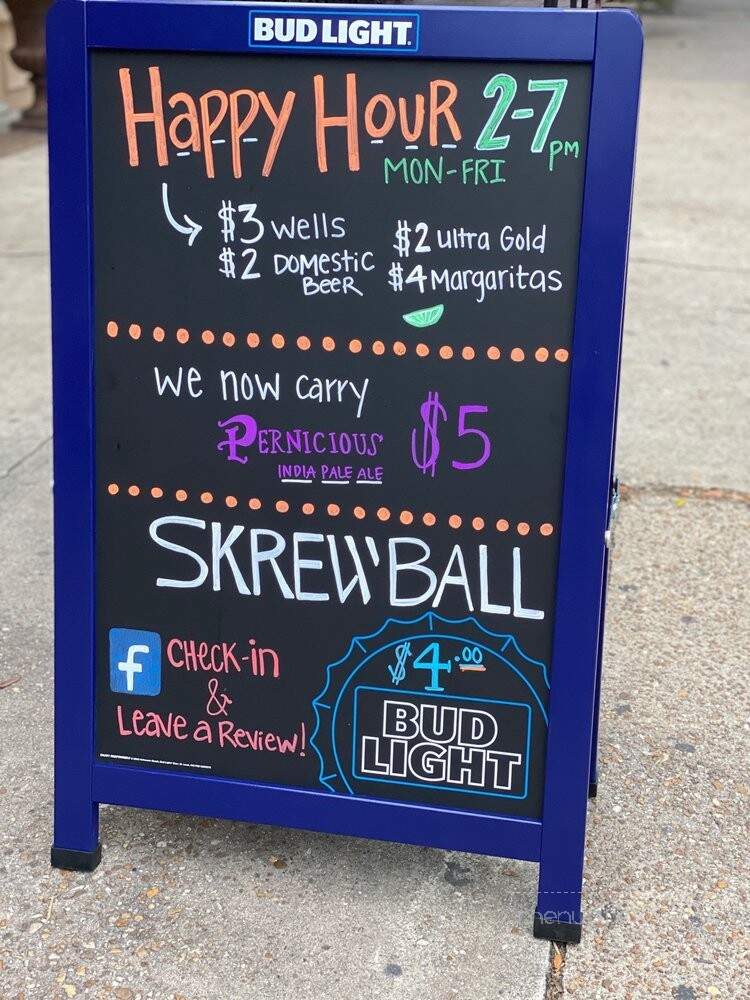 BUD LIGHT
HAPPY HOUR 2-7 PM
MON-FRI
$3 wells
$2 Domestic Beer
$2 Ultra Gold
$4 Margaritas
we now carry
PERNICIOUS $5
INDIA PALE ALE
SKREWBALL
$4.00
f CHECK-in
&
Leave a Review!
BUD
LIGHT
menu